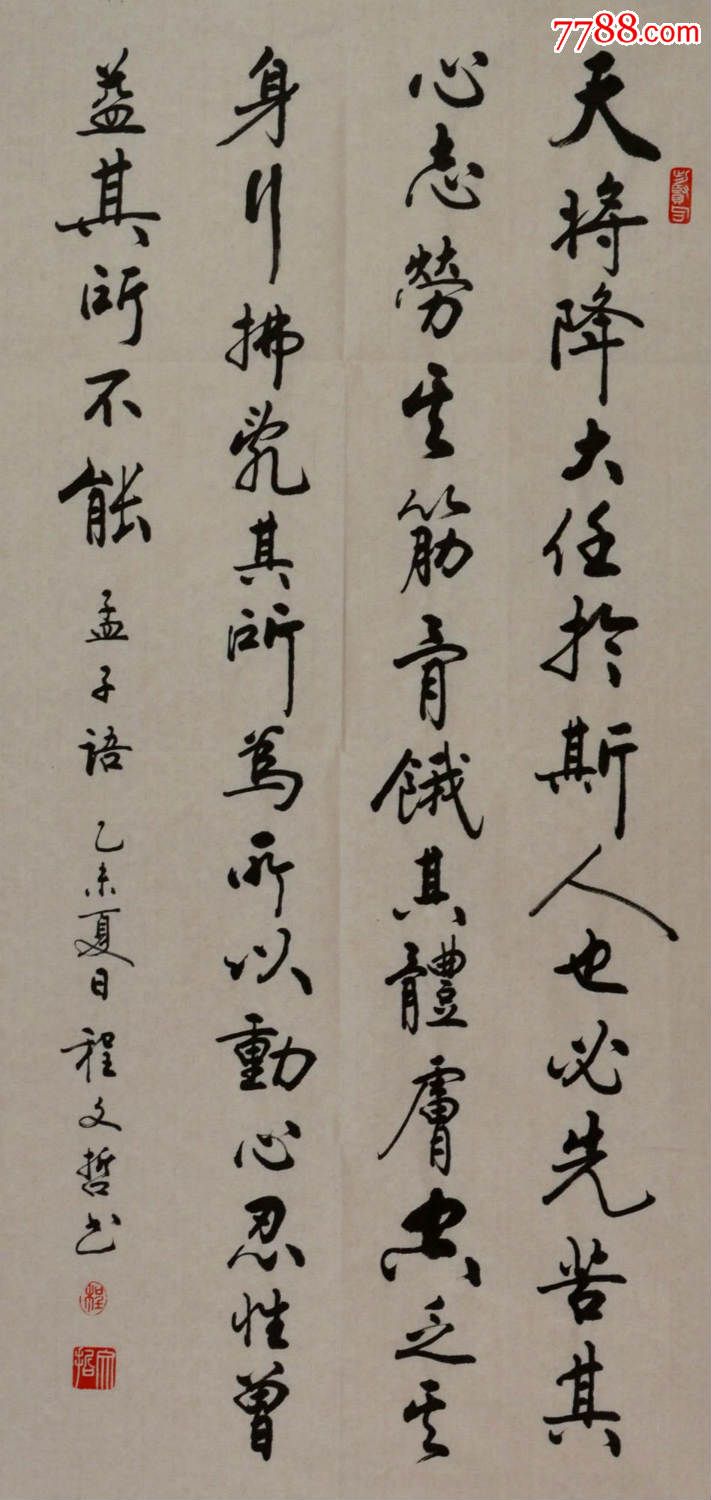 7788.com
天将降大任於斯人也必先苦其
心志勞其筋骨餓其體膚空乏其
身行拂亂其所爲所以動心忍性曾
益其所不能 孟子語 乙未夏日 程文哲书
程